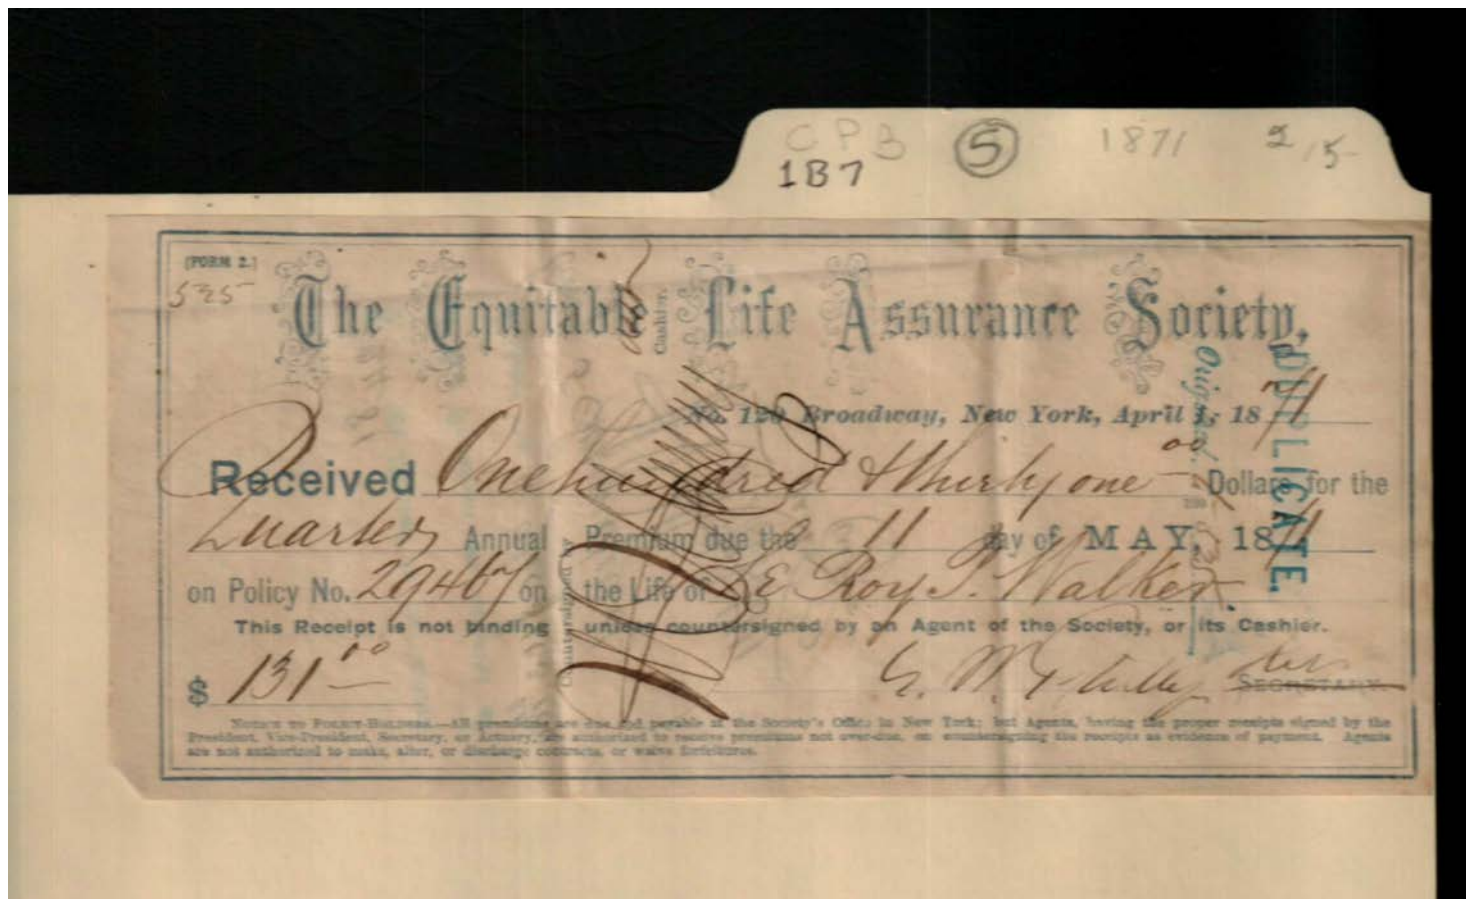 CPB (5) 1871 2/5
1B7
[FORM 2.]
525
The Equitable Life Assurance Society,
No. 120 Broadway, New York, April 1, 1871
Received One hundred & thirty one 00 Dollars for the
Quarter Annual Premium due the 11 day of MAY, 1871
on Policy No. 29467 on the Life of Le Roy P. Walker
This Receipt is not binding unless countersigned by an Agent of the Society, or its Cashier.
$ 131 00
SECRETARY.
NOTICE TO POLICY-HOLDERS.—All premiums are due and payable at the Society's Office in New York; but Agents, having the proper receipts signed by the
President, Vice-President, Secretary, or Actuary, are authorized to receive premiums not over-due, on countersigning the receipts as evidence of payment. Agents
are not authorized to make, alter, or discharge contracts, or waive forfeitures.
Countersigned by
Cashier.
Original
DUPLICATE.